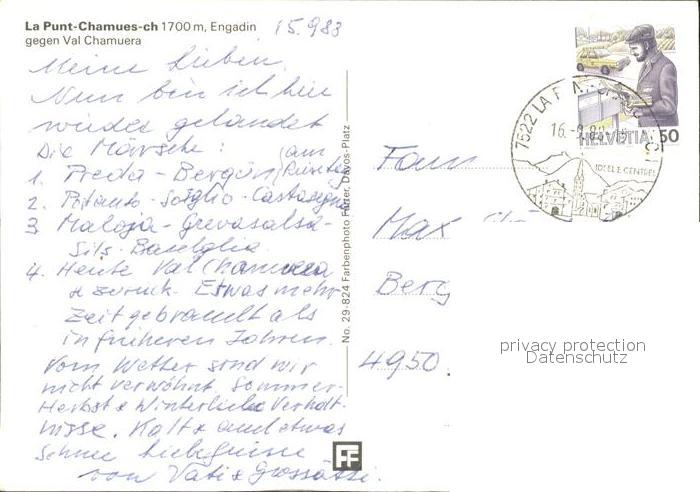 La Punt-Chamues-ch 1700 m, Engadin
gegen Val Chamuera
15.9.88
Meine Lieben.
Nun bin ich hier
wieder gelandet
Die Märsche: (am
1. Preda - Bergün
2. Pitanto - Soglio - Castasegna
3. Maloja - Grevasalvas -
Sils - Baselgia.
4. Heute Val Chamuera
& zurück. Etwas mehr
Zeit gebraucht als
in früheren Jahren.
Vom Wetter sind wir
nicht verwöhnt. Sommer-
Herbst & Winterliche Verhält-
nisse. Kalt & auch etwas
Schnee Liebe Grüsse
von Vati & Grossätti.
No. 29-824 Farbenphoto Furter, Davos-Platz
FF
Fam
Max
Berg
4950
HELVETIA 50
7522 LA
16.
privacy protection
Datenschutz